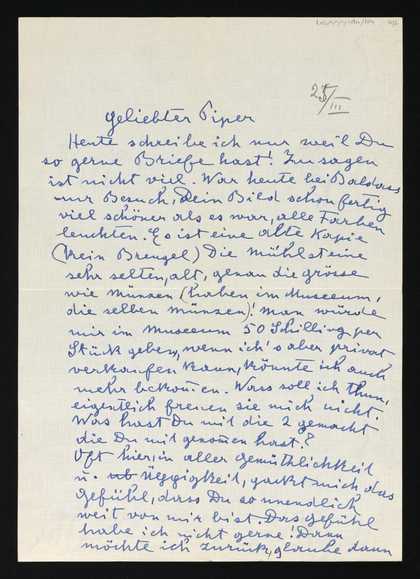 25/III
Geliebter Piper
Heute schreibe ich nur weil Du
so gerne Briefe hast! Zu sagen
ist nicht viel. War heute bei Baldass
nur Besuch, Dein Bild schon fertig
viel schöner als es war, alle Farben
leuchten. Es ist eine alte Kopie
(kein Breugel) Die Mühlsteine
sehr selten, alt, genau die grösse
wie Münzen (haben im Museeum,
die selben Münzen)! man würde
mir im Museeum 50 Schilling per
Stück geben, wenn ich's aber privat
verkaufen kann, könnte ich auch
mehr bekom̄en. Was soll ich thun,
eigentlich freuen sie mich nicht.
Was hast Du mit die 2 gemacht
die Du mit genom̄en hast?
Oft hier, in aller Gemütlichkeit
u. Üppigkeit, packt mich das
Gefühl, dass Du so unendlich
weit von mir bist. Das Gefühl
habe ich nicht gerne! Dann
möchte ich zurück, glaube dann